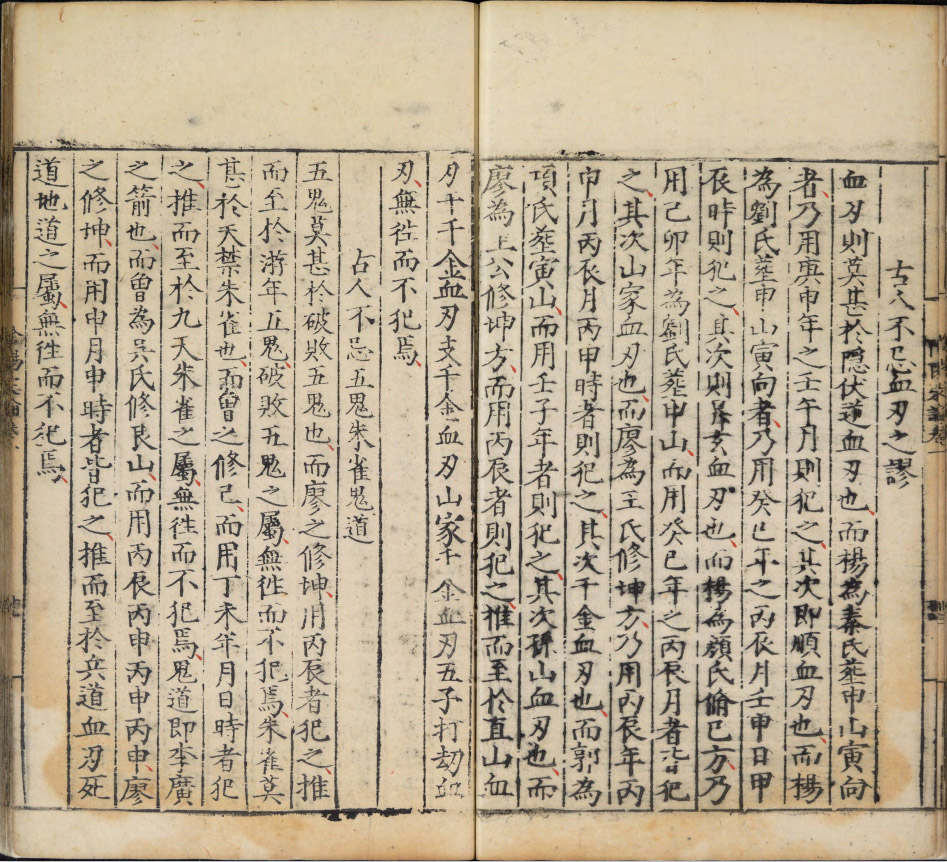 古人不忌血刃之謬
血刃則莫甚於隱伏蓮血刃也而楊為秦氏葬申山寅向
者乃用庚申年之壬午月則犯之其次即順血刃也而楊
為劉氏葬申山寅向者乃用癸巳年之丙辰月壬申日甲
辰時則犯之其次則昇玄血刃也而楊為顏氏脩巳方乃
用己卯年為劉氏葬申山而用癸巳年之丙辰月者皆犯
之其次山家血刃也而廖為王氏修坤方乃用丙辰年丙
申月丙辰月丙申時者則犯之其次千金血刃也而郭為
項氏葬寅山而用壬子年者則犯之其次孫山血刃也而
廖為上公修坤方而用丙辰者則犯之推而至於直山血
刃千千金血刃支千金血刃山家千金血刃五子打劫血
刃無徃而不犯焉
古人不忌五鬼朱雀鬼道
五鬼莫甚於破敗五鬼也而廖之修坤用丙辰者犯之推
而至於游年五鬼破敗五鬼之屬無徃而不犯焉朱雀莫
甚於天禁朱雀也而曾之修己而用丁未年月日時者犯
之推而至於九天朱雀之屬無徃而不犯焉鬼道即李廣
之箭也而曾為吳氏修艮山而用丙辰丙申丙申丙申廖
之修坤而用申月申時者皆犯之推而至於兵道血刃死
道地道之屬無徃而不犯焉